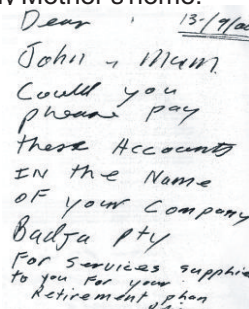 y Mother's home.
Dear , 13-/9/00
John & Mum.
Could you
please pay
these Accounts
IN the Name
OF your Company
Badja Pty
For Services supplied
to you For your
Retirement plan